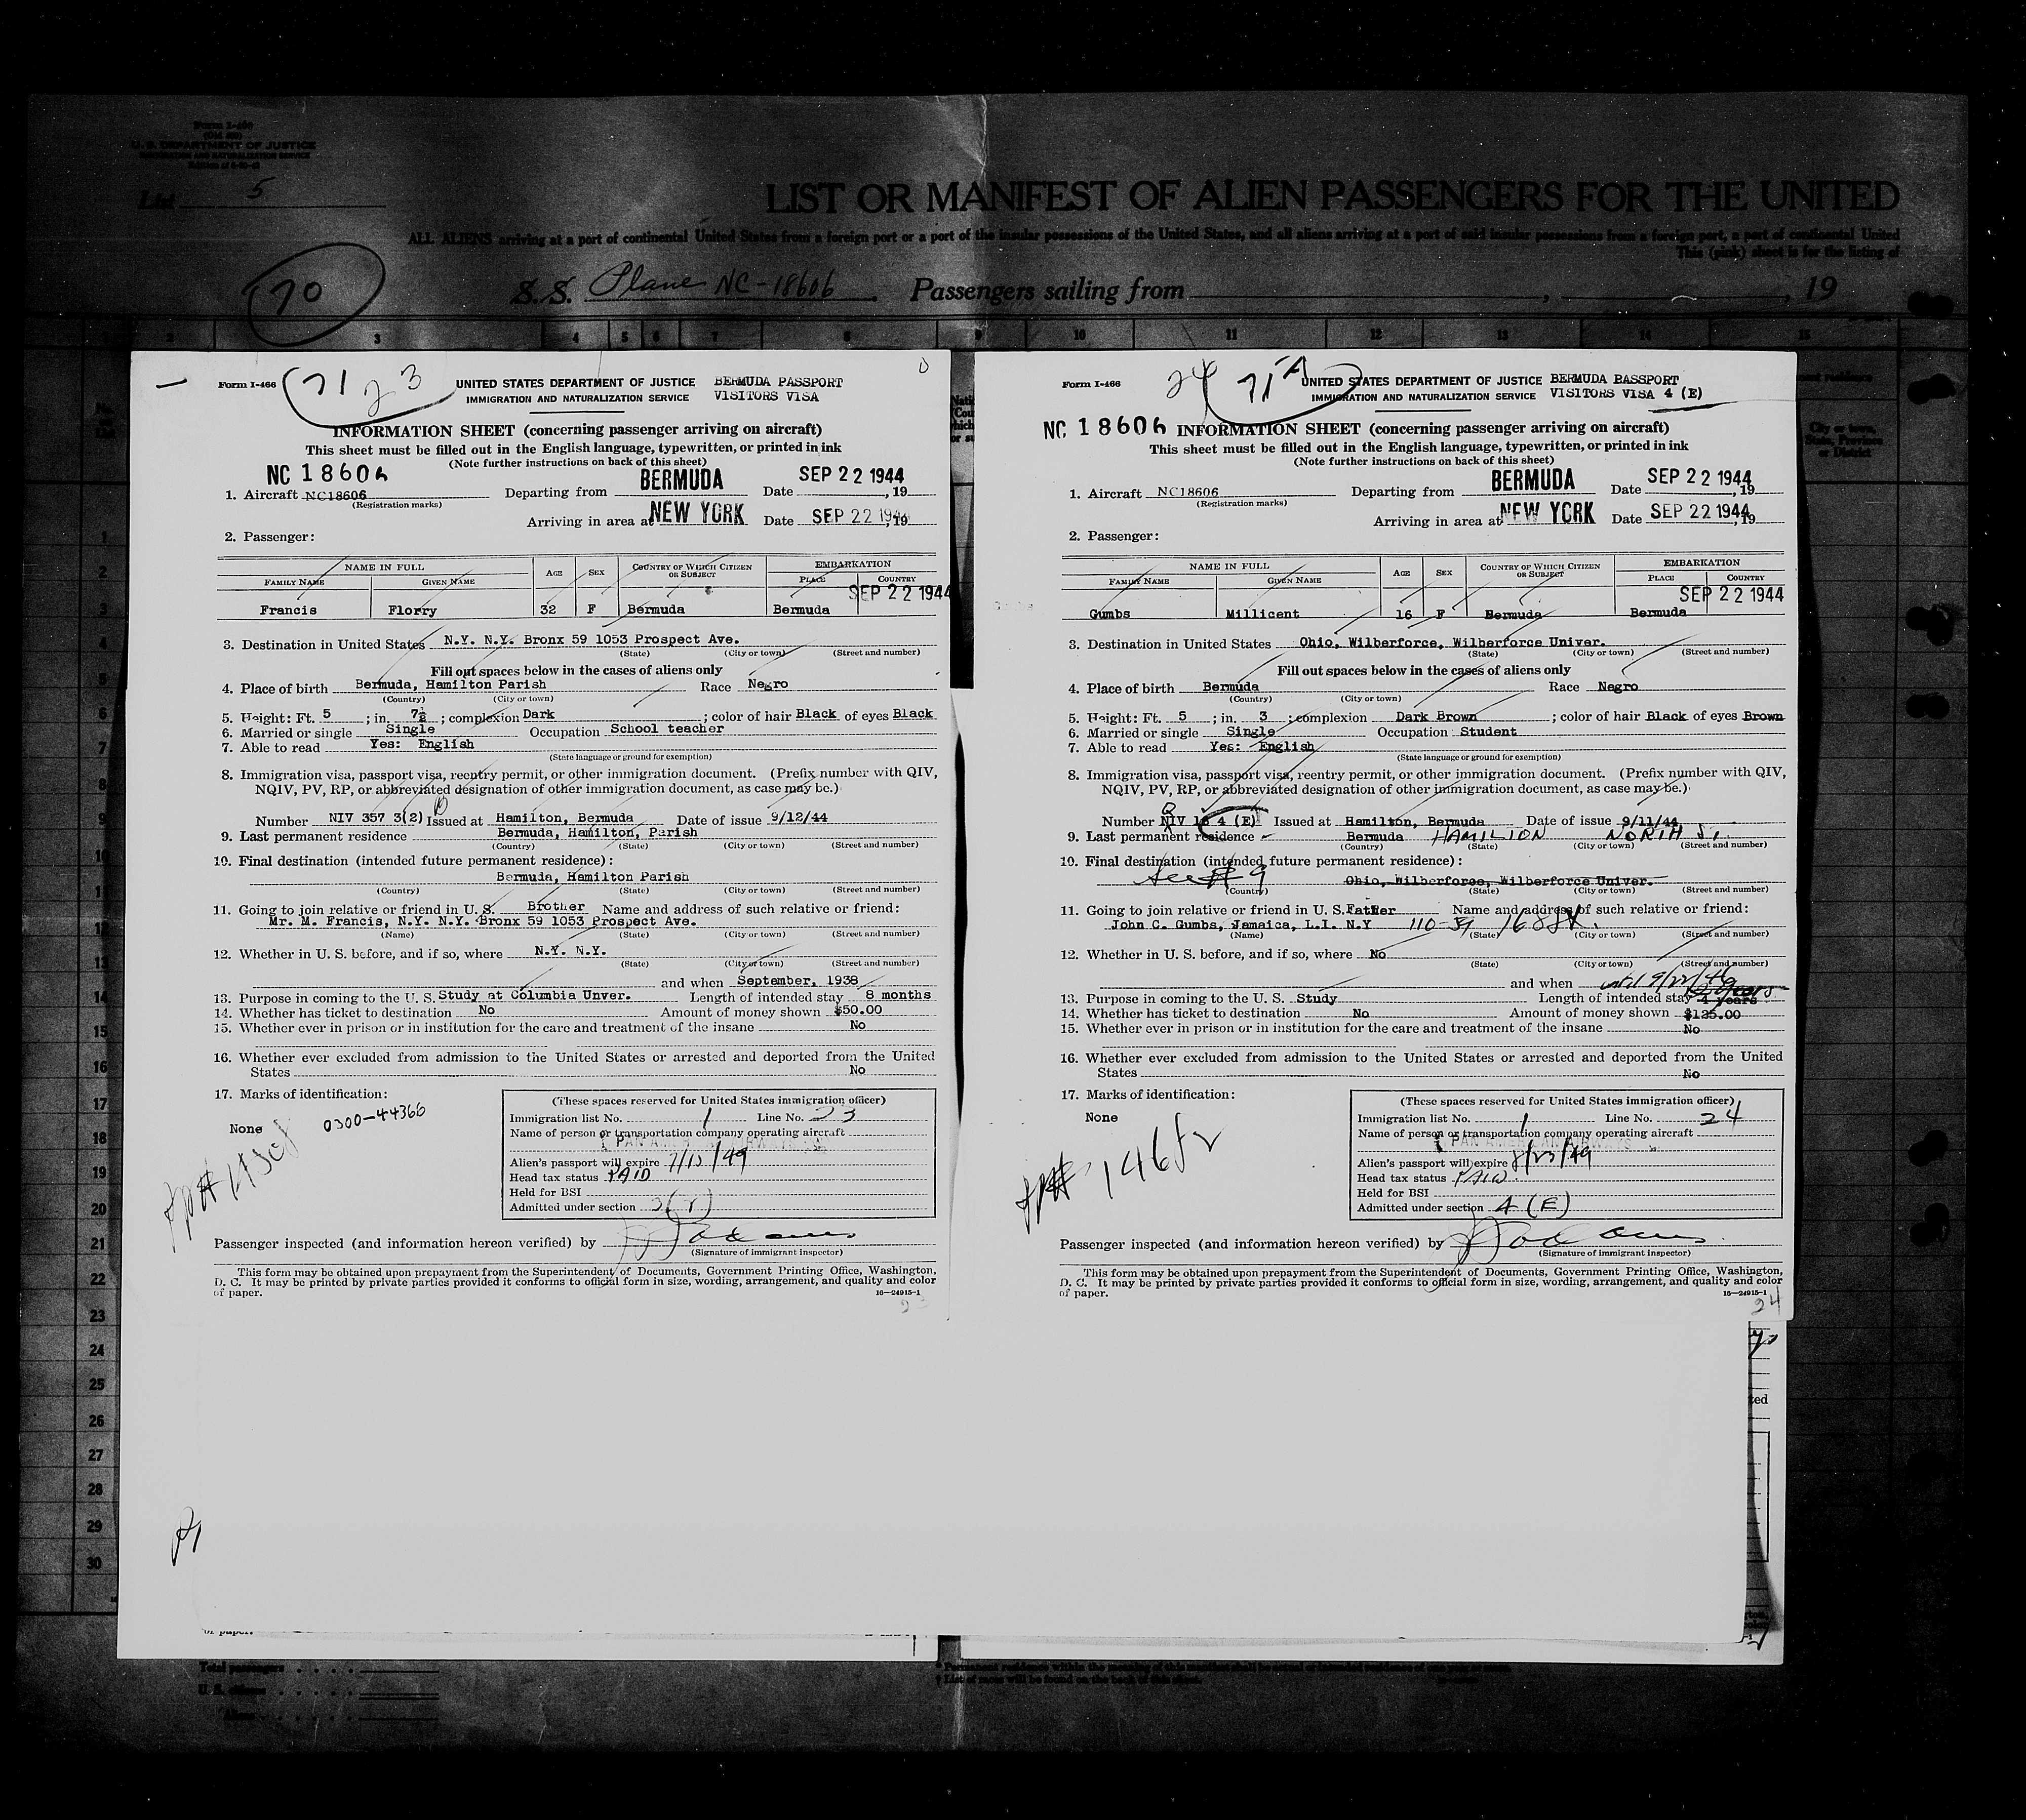 Form I-466
U. S. DEPARTMENT OF JUSTICE
IMMIGRATION AND NATURALIZATION SERVICE
List 5
LIST OR MANIFEST OF ALIEN PASSENGERS FOR THE UNITED
ALL ALIENS arriving at a port of continental United States from a foreign port or a port of the insular possessions of the United States, and all aliens arriving at a port of said insular possessions from a foreign port, a port of continental United
This (pink) sheet is for the listing of
70
S. S. Plane NC-18606. Passengers sailing from , , 19
2 3 4 5 6 7 8 9 10 11 12 13 14 15
Form I-466
71 23
UNITED STATES DEPARTMENT OF JUSTICE
IMMIGRATION AND NATURALIZATION SERVICE
BERMUDA PASSPORT
VISITORS VISA
INFORMATION SHEET (concerning passenger arriving on aircraft)
This sheet must be filled out in the English language, typewritten, or printed in ink
(Note further instructions on back of this sheet)
NC 18606
1. Aircraft NC18606 Departing from BERMUDA Date SEP 22 1944, 19
(Registration marks)
Arriving in area at NEW YORK Date SEP 22 1944, 19
2. Passenger:
NAME IN FULL AGE SEX COUNTRY OF WHICH CITIZEN OR SUBJECT EMBARKATION
FAMILY NAME GIVEN NAME PLACE COUNTRY
SEP 22 1944
Francis Florry 32 F Bermuda Bermuda
3. Destination in United States N.Y. N.Y. Bronx 59 1053 Prospect Ave.
(State) (City or town) (Street and number)
Fill out spaces below in the cases of aliens only
4. Place of birth Bermuda, Hamilton Parish Race Negro
(Country) (City or town)
5. Height: Ft. 5 ; in. 7½ ; complexion Dark ; color of hair Black of eyes Black
6. Married or single Single Occupation School teacher
7. Able to read Yes: English
(State language or ground for exemption)
8. Immigration visa, passport visa, reentry permit, or other immigration document. (Prefix number with QIV,
NQIV, PV, RP, or abbreviated designation of other immigration document, as case may be.)
Number NIV 357 3(2) Issued at Hamilton, Bermuda Date of issue 9/12/44
9. Last permanent residence Bermuda, Hamilton, Parish
(Country) (State) (City or town) (Street and number)
10. Final destination (intended future permanent residence):
Bermuda, Hamilton Parish
(Country) (State) (City or town) (Street and number)
11. Going to join relative or friend in U. S. Brother Name and address of such relative or friend:
Mr. M. Francis, N.Y. N.Y. Bronx 59 1053 Prospect Ave.
(Name) (State) (City or town) (Street and number)
12. Whether in U. S. before, and if so, where N.Y. N.Y.
(State) (City or town) (Street and number)
and when September, 1938
13. Purpose in coming to the U. S. Study at Columbia Unver. Length of intended stay 8 months
14. Whether has ticket to destination No Amount of money shown $50.00
15. Whether ever in prison or in institution for the care and treatment of the insane No
16. Whether ever excluded from admission to the United States or arrested and deported from the United
States No
17. Marks of identification:
None
0300-44366
(These spaces reserved for United States immigration officer)
Immigration list No. 1 Line No. 23
Name of person or transportation company operating aircraft
PAN AMERICAN AIRWAYS
Alien's passport will expire 7/15/49
Head tax status PAID
Held for BSI
Admitted under section 3(2)
Passenger inspected (and information hereon verified) by
(Signature of immigrant inspector)
This form may be obtained upon prepayment from the Superintendent of Documents, Government Printing Office, Washington,
D. C. It may be printed by private parties provided it conforms to official form in size, wording, arrangement, and quality and color
of paper.
16—24915-1
23
Form I-466
24 71A
UNITED STATES DEPARTMENT OF JUSTICE
IMMIGRATION AND NATURALIZATION SERVICE
BERMUDA PASSPORT
VISITORS VISA 4 (E)
NC 18606 INFORMATION SHEET (concerning passenger arriving on aircraft)
This sheet must be filled out in the English language, typewritten, or printed in ink
(Note further instructions on back of this sheet)
1. Aircraft NC18606 Departing from BERMUDA Date SEP 22 1944, 19
(Registration marks)
Arriving in area at NEW YORK Date SEP 22 1944, 19
2. Passenger:
NAME IN FULL AGE SEX COUNTRY OF WHICH CITIZEN OR SUBJECT EMBARKATION
FAMILY NAME GIVEN NAME PLACE COUNTRY
SEP 22 1944
Gumbs Millicent 16 F Bermuda Bermuda
3. Destination in United States Ohio, Wilberforce, Wilberforce Univer.
(State) (City or town) (Street and number)
Fill out spaces below in the cases of aliens only
4. Place of birth Bermuda Race Negro
(Country) (City or town)
5. Height: Ft. 5 ; in. 3 ; complexion Dark Brown ; color of hair Black of eyes Brown
6. Married or single Single Occupation Student
7. Able to read Yes: English
(State language or ground for exemption)
8. Immigration visa, passport visa, reentry permit, or other immigration document. (Prefix number with QIV,
NQIV, PV, RP, or abbreviated designation of other immigration document, as case may be.)
Number NIV 16 4 (E) Issued at Hamilton, Bermuda Date of issue 9/11/44
9. Last permanent residence Bermuda HAMILTON NORTH ST.
(Country) (State) (City or town) (Street and number)
10. Final destination (intended future permanent residence):
See # 9 Ohio, Wilberforce, Wilberforce Univer.
(Country) (State) (City or town) (Street and number)
11. Going to join relative or friend in U. S. Father Name and address of such relative or friend:
John C. Gumbs, Jamaica, L.I. N.Y 110-39 168 St.
(Name) (State) (City or town) (Street and number)
12. Whether in U. S. before, and if so, where No
(State) (City or town) (Street and number)
and when until 9/22/46
13. Purpose in coming to the U. S. Study Length of intended stay 4 years 2 years
14. Whether has ticket to destination No Amount of money shown $125.00
15. Whether ever in prison or in institution for the care and treatment of the insane No
16. Whether ever excluded from admission to the United States or arrested and deported from the United
States No
17. Marks of identification:
None
(These spaces reserved for United States immigration officer)
Immigration list No. 1 Line No. 24
Name of person or transportation company operating aircraft
PAN AMERICAN AIRWAYS
Alien's passport will expire 8/23/49
Head tax status PAID
Held for BSI
Admitted under section 4 (E)
Passenger inspected (and information hereon verified) by
(Signature of immigrant inspector)
This form may be obtained upon prepayment from the Superintendent of Documents, Government Printing Office, Washington,
D. C. It may be printed by private parties provided it conforms to official form in size, wording, arrangement, and quality and color
of paper.
16—24915-1
24
1
2
3
4
5
6
7
8
9
10
11
12
13
14
15
16
17
18
19
20
21
22
23
24
25
26
27
28
29
30
of paper.
Total passengers
U. S. citizens
Aliens
† List of races will be found on the back of this sheet.